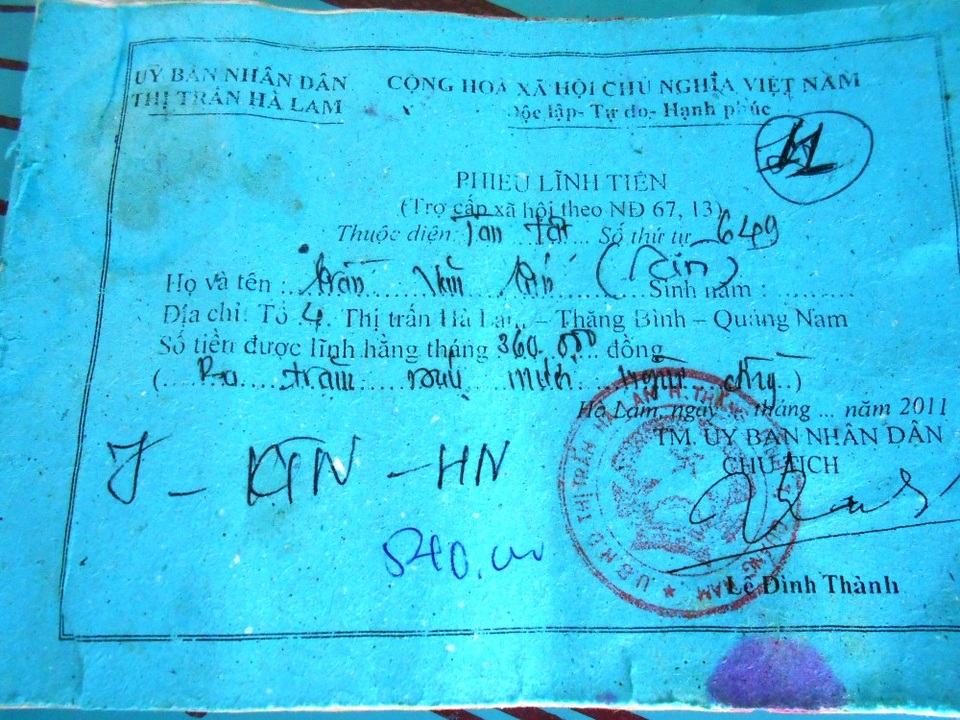 UỶ BAN NHÂN DÂN
THỊ TRẤN HÀ LAM
CỘNG HOÀ XÃ HỘI CHỦ NGHĨA VIỆT NAM
Độc lập- Tự do- Hạnh phúc
11
PHIẾU LĨNH TIỀN
(Trợ cấp xã hội theo NĐ 67, 13)
Thuộc diện: Tàn tật... Số thứ tự 649
Họ và tên :... Trần Văn ... Sinh năm : .........
Địa chỉ: Tổ 4. Thị trấn Hà Lam – Thăng Bình – Quảng Nam
Số tiền được lĩnh hằng tháng 360.000.... đồng
(....Ba....trăm sáu mươi ngàn đồng..)
Hà Lam, ngày ... tháng ... năm 2011
TM. UỶ BAN NHÂN DÂN
CHỦ TỊCH
J - KTN - HN
540.000
Lê Đình Thành